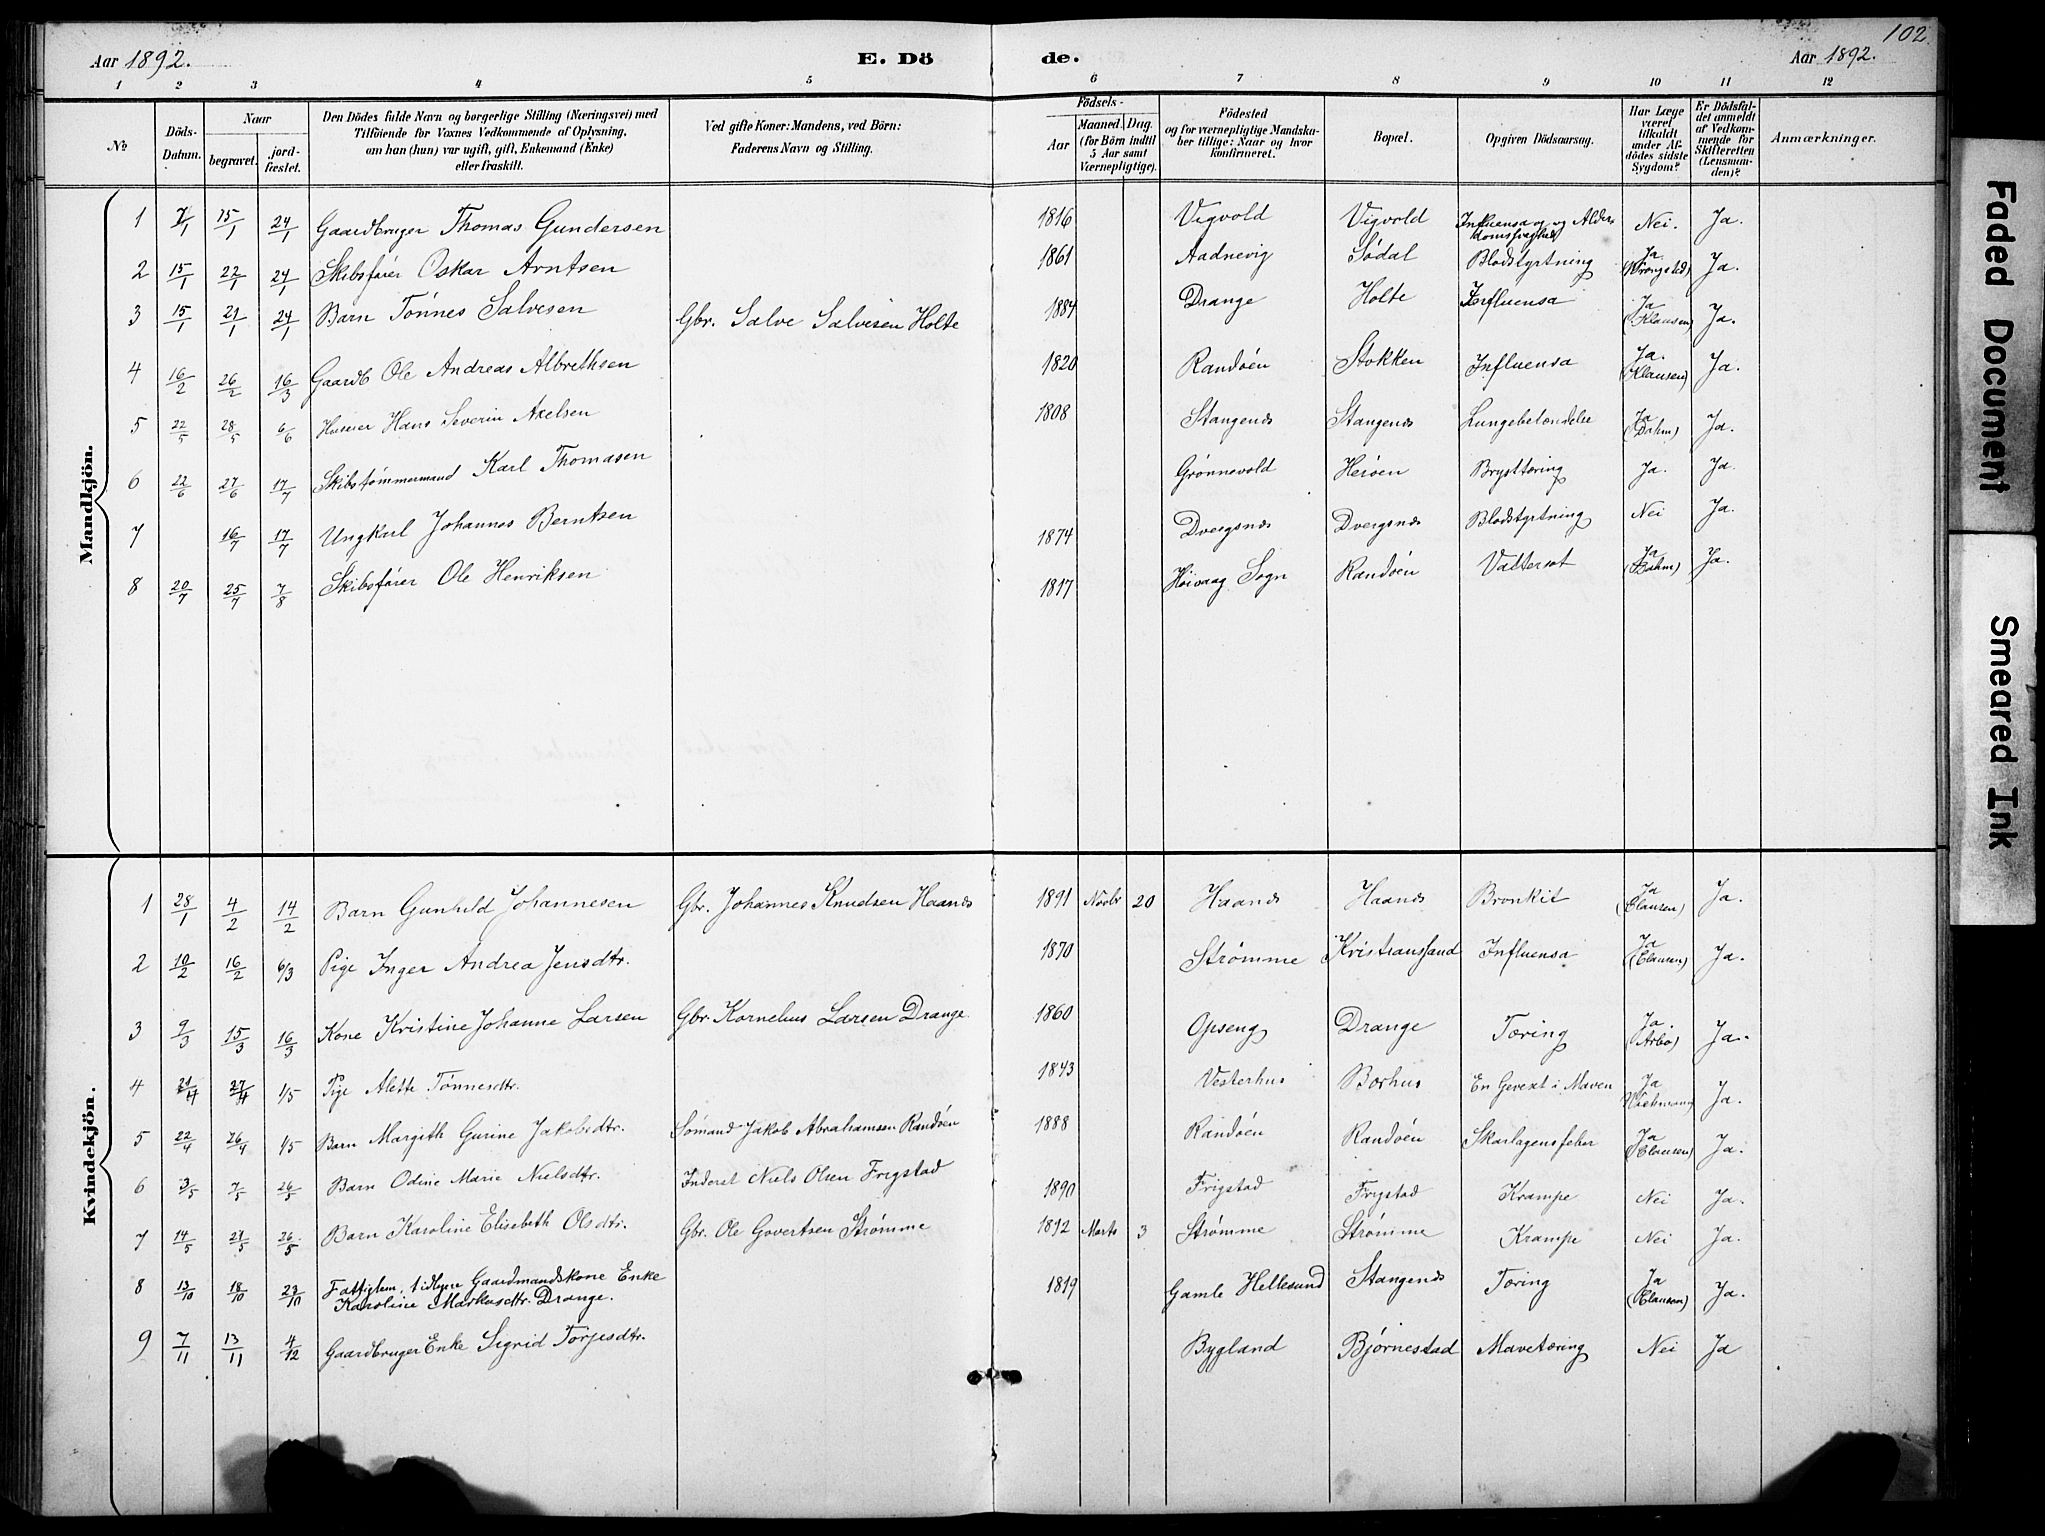 102.
Aar 1892. E. Dö de. Aar 1892.
1 2 3 4 5 6 7 8 9 10 11 12
No
Döds-Datum.
Naar
begravet.
jord-fæstet.
Den Dödes fulde Navn og borgerlige Stilling (Næringsvei) med
Tilföiende for Voxnes Vedkommende af Oplysning,
om han (hun) var ugift, gift, Enkemand (Enke)
eller fraskilt.
Ved gifte Koner: Mandens, ved Börn:
Faderens Navn og Stilling.
Födsels-
Aar
Maaned. Dag.
(for Börn indtil
5 Aar samt
Værnepligtige).
Födested
og for værnepligtige Mandska-
ber tillige: Naar og hvor
konfirmeret.
Bopæl.
Opgiven Dödsaarsag.
Har Læge
været
tilkaldt
under Af-
dödes sidste
Sygdom?
Er Dödsfal-
det anmeldt
af Vedkom-
mende for
Skifteretten
(Lensman-
den)?
Anmærkninger.
Mandkjön.
1 7/1 15/1 24/1 Gaardbruger Thomas Gundersen 1816 Vigvold Vigvold Influensa og Alderdomssvaghed Nei. Ja.
2 15/1 22/1 24/1 Skibsfører Oskar Arntsen 1861 Aadnevig Sødal Blodstyrtning Ja Ja.
3 15/1 21/1 24/1 Barn Tønnes Salvesen Gbr. Salve Salvesen Holte 1884 Drange Holte Influensa Ja (Klausen) Ja.
4 16/2 26/2 16/3 Gaardb Ole Andreas Albrethsen 1820 Randøen Stokken Influensa Ja. (Klausen) Ja.
5 22/5 28/5 6/6 Hans Severin Axelsen 1808 Stangenes Stangenes Lungebetændelse Ja (Dahm) Ja.
6 22/6 27/6 17/7 Skibstømmermand Karl Thomasen Grønnevold Herøen Brysttæring Ja. Ja.
7 16/7 17/7 Ungkarl Johannes Berntsen 1874 Dvergsnes Dvergsnes Blodstyrtning Nei Ja.
8 20/7 25/7 7/8 Skibsfører Ole Henriksen 1817 Høivaag Sogn Randøen Vattersot Ja (Dahm) Ja.
Kvindekjön.
1 28/1 4/2 14/2 Barn Gunhild Johannesen Gbr. Johannes Knudsen Haanes 1891 Novbr 20 Haanes Haanes Bronkit Ja (Clausen) Ja.
2 10/2 16/2 6/3 Pige Inger Andrea Jensdtr. 1870 Strømme Kristianssand Influensa Ja (Clausen) Ja.
3 9/3 15/3 16/3 Kone Kristine Johanne Larsen Gbr. Kornelius Larsen Drange. 1860 Opseng Drange Tæring Ja. (Arbo) Ja.
4 21/4 27/4 1/5 Pige Alette Tønnesdtr. 1843 Vesterhus Borhus En Gevext i Maven Ja Ja.
5 22/4 26/4 1/5 Barn Margith Gurine Jakobsdtr. Sømand Jakob Abrahamsen Randøen 1888 Randøen Randøen Skarlagensfeber Ja (Clausen) Ja.
6 3/5 7/5 26/5 Barn Odine Marie Nielsdtr. Inderst Niels Olsen Frigstad 1890 Frigstad Frigstad Krampe Nei Ja.
7 14/5 21/5 26/5 Barn Karoline Elisebeth Olsdtr. Gbr. Ole Govertsen Strømme 1892 Marts 3 Strømme Strømme Krampe Nei Ja.
8 13/10 18/10 23/10 Fattiglem, tidligere Gaardmandskone Enke
Karoline Markusdtr. Drange. 1819 Gamle Hellesund Stangenes Tæring Ja (Clausen) Ja.
9 7/11 13/11 4/12 Gaardbruger Enke Sigrid Torjesdtr. Bygland Bjørnestad Mavetæring Nei Ja
Faded Document
Smeared Ink